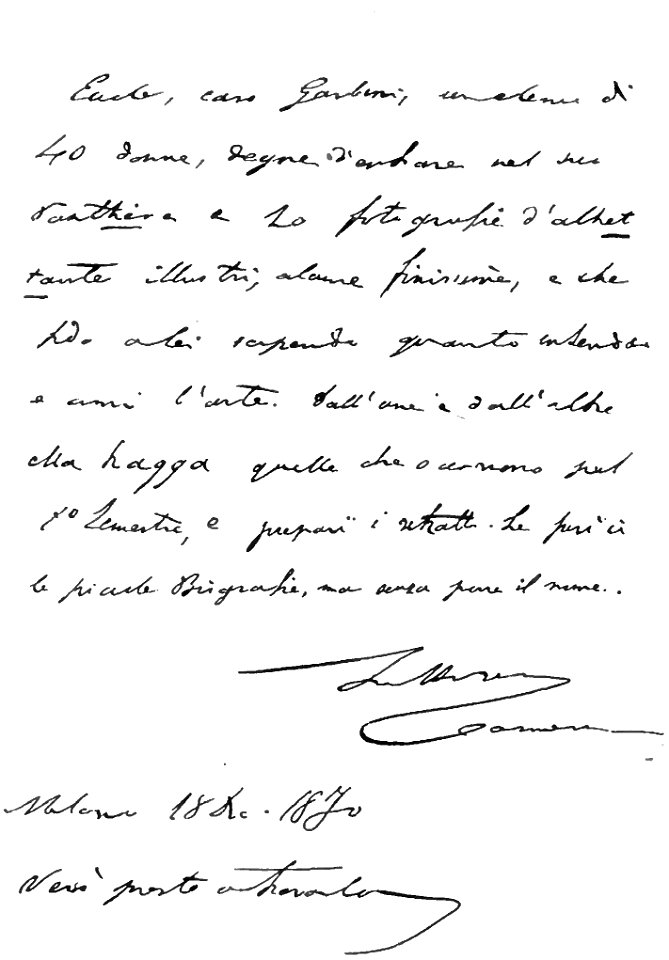 Eccole, caro Garbini, un elenco di
40 donne, degne d'entrare nel suo
Panthéon e 20 fotografie d'altret
tante illustri, alcune finissime, e che
fido a lei sapendo quanto intenda
e ami l'arte. Dall'une e dall'altre
ella tragga quelle che occorrono pel
1º Semestre, e prepari i ritratti. Le farò io
le piccole Biografie, ma senza porre il nome.
Milano 18 Dic. 1870
Verrò presto a trovarla